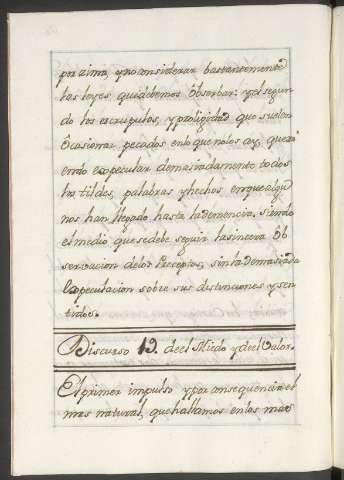 por zima, y no considerar bastantemente
las leyes que debemos Observar: y el segun
do los escrupulos, y prolijidad que suelen
Ocasionar pecados en lo que no los ay, querí
endo expecular demasiadamente todos
los tildes, palabras y hechos en que algu
nos han llegado hasta la demencia. Siendo
el medio que se debe seguir la sincera Ob
servacion de los Preceptos, sin la demasiada
Expeculacion sobre sus distinciones y sen
tidos.
Discurso 19. de el Miedo y de el Valor.
El primer impulso y por consequencia el
mas natural, que hallamos en las mas